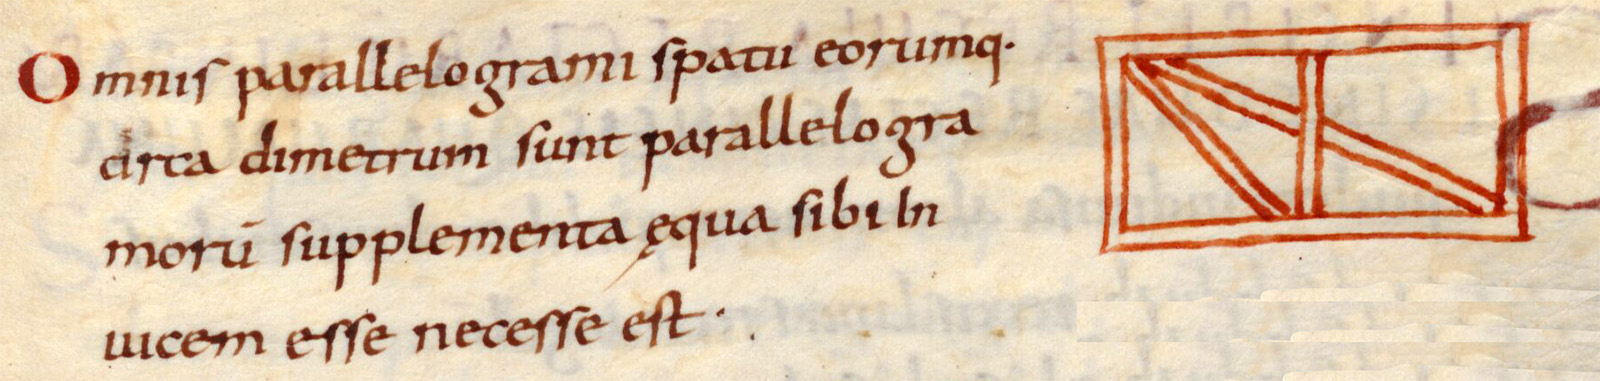 Omnis parallelogrami spatii eorumq·
circa dimetrum sunt parallelogra
morū supplementa ęqua sibi In
uicem esse necesse est·